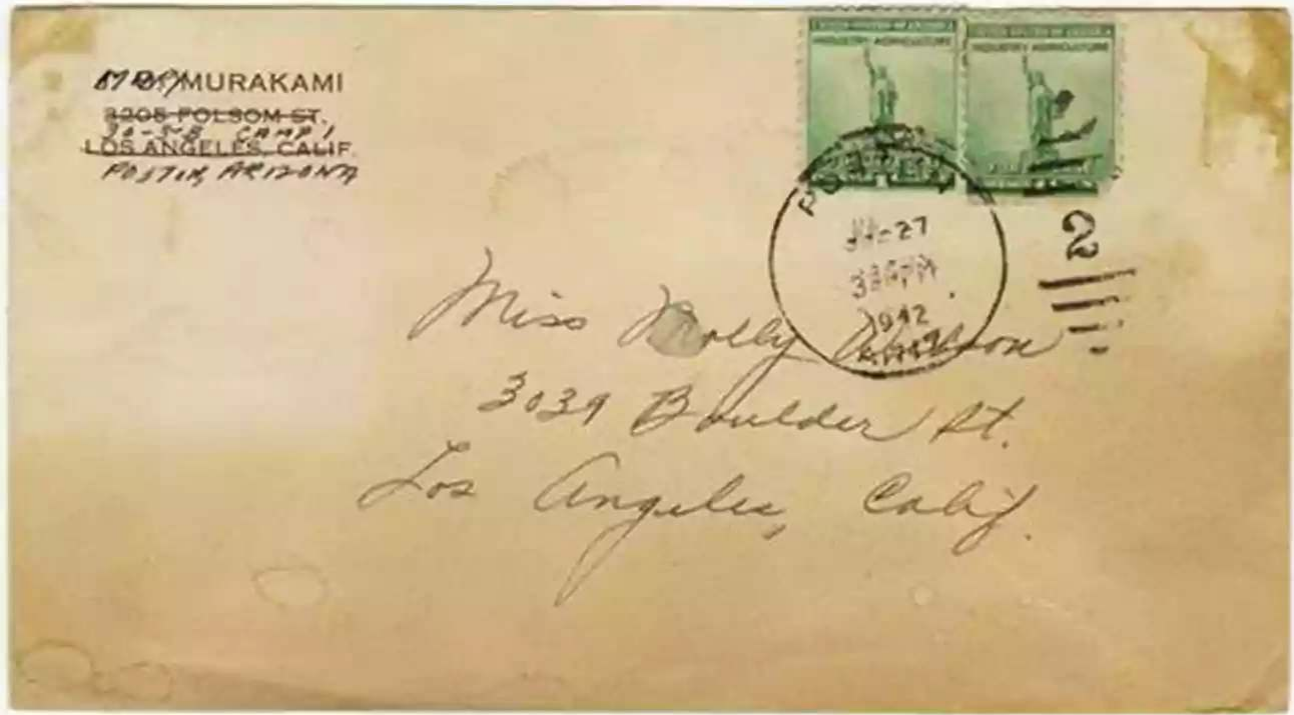 MARY MURAKAMI
3205 FOLSOM ST.
30-5-B CAMP 1
LOS ANGELES, CALIF.
POSTON, ARIZONA
UNITED STATES OF AMERICA
INDUSTRY AGRICULTURE
UNITED STATES OF AMERICA
INDUSTRY AGRICULTURE
27
PM
1942
ARIZ
2
Miss Molly Wilson
3039 Boulder St.
Los Angeles, Calif.